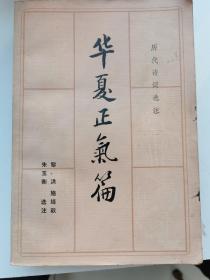 历代诗词选注
华夏正氣篇
黎洪 施培毅
朱玉衡 选注